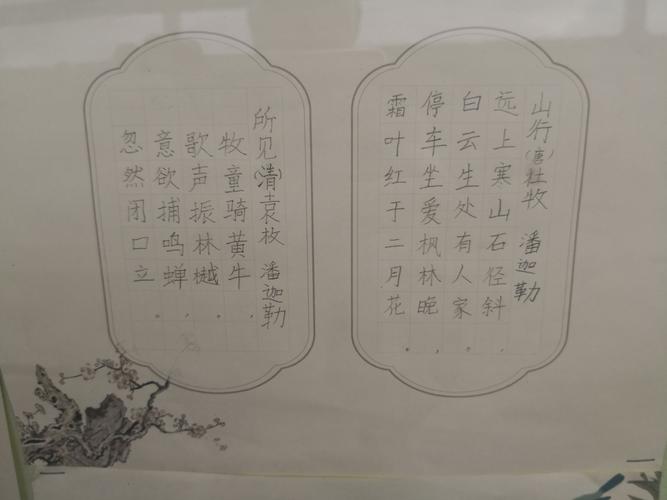 山行(唐)杜牧 潘迦勒
远上寒山石径斜,
白云生处有人家。
停车坐爱枫林晚,
霜叶红于二月花。
所见(清)袁枚 潘迦勒
牧童骑黄牛,
歌声振林樾。
意欲捕鸣蝉,
忽然闭口立。